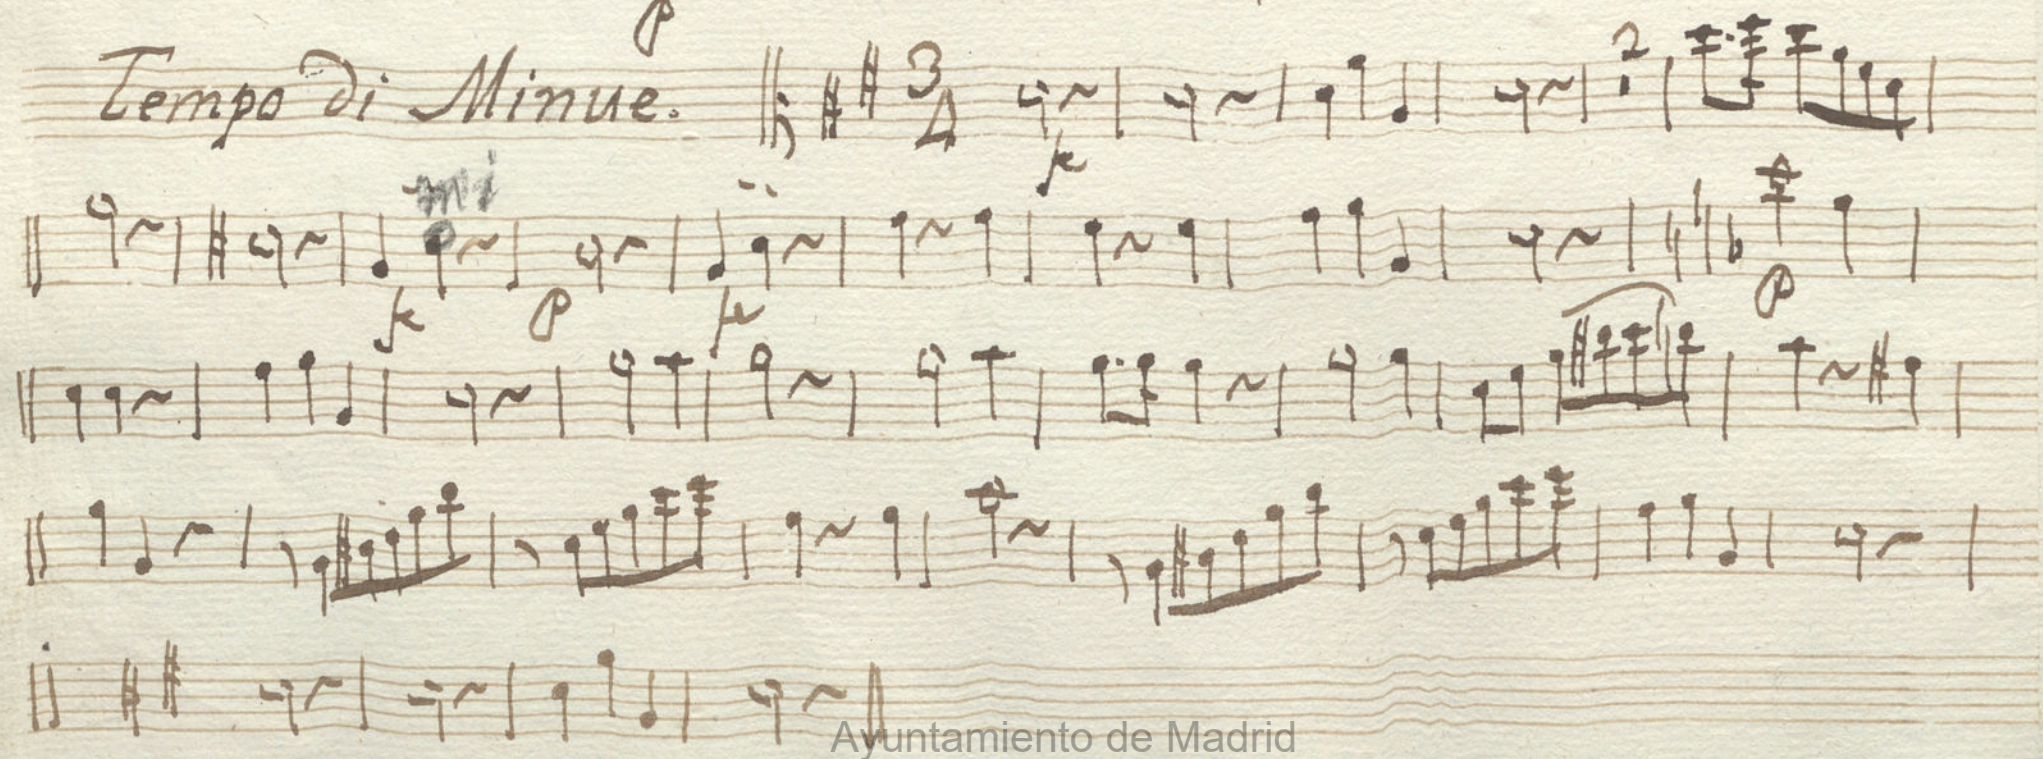 p
Tempo di Minue. 3/4 2
f
mi
p
f p f
Ayuntamiento de Madrid